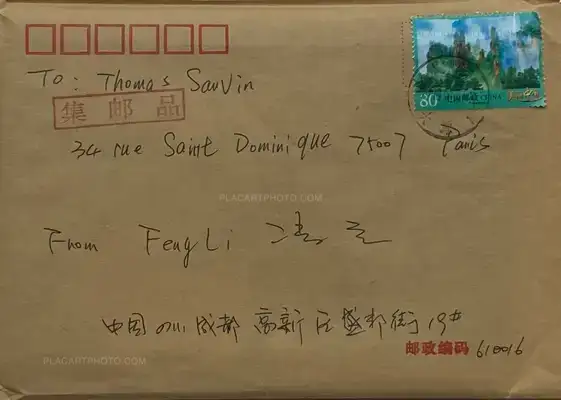 80 中国邮政 CHINA
To: Thomas Sauvin
集邮品
34 rue Saint Dominique 75007 Paris
PLACARTPHOTO.COM
From Feng Li 冯立
中国 四川 成都 高新区盛邦街19#
PLACARTPHOTO.COM
邮政编码 610016